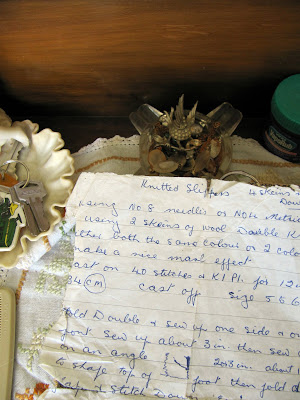 Knitted Slippers 4 skeins
Dou
Using No 8 needles or No 4 Metric
using 2 skeins of wool Double K
either both the same colour or 2 colo
make a nice mash effect
cast on 40 stitches & K1 P1. for 12
4 cm cast off size 5 6
Fold Double & sew up one side & o
foot sew up about 3 in then sew
on an angle about 1
to shape top of foot then fold
& stitch Down